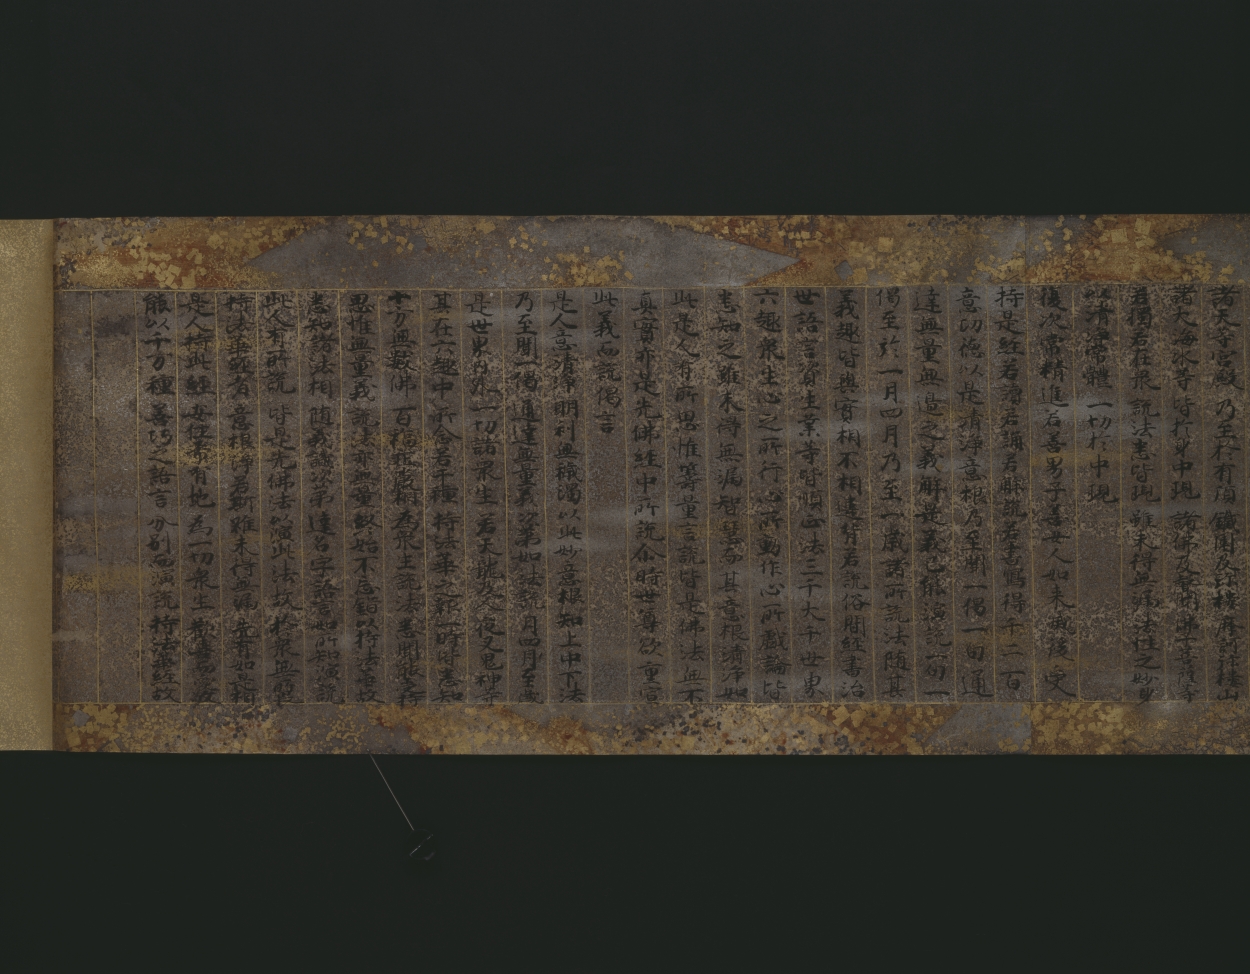 諸天等宮殿 乃至於有頂 鐵圍及彌樓 摩訶彌樓山
諸大海水等 皆於身中現 諸佛及聲聞 佛子菩薩等
若獨若在眾 說法悉皆現 雖未得無漏 法性之妙身
以清淨常體 一切於中現
復次常精進若善男子善女人如來滅後受
持是經若讀若誦若解說若書寫得千二百
意功德以是清淨意根乃至聞一偈一句通
達無量無邊之義解是義已能演說一句一
偈至於一月四月乃至一歲諸所說法隨其
義趣皆與實相不相違背若說俗間經書治
世語言資生業等皆順正法三千大千世界
六趣眾生心之所行心所動作心所戲論皆
悉知之雖未得無漏智慧而其意根清淨如
此是人有所思惟籌量言說皆是佛法無不
真實亦是先佛經中所說尒時世尊欲重宣
此義而說偈言
是人意清淨 明利無穢濁 以此妙意根 知上中下法
乃至聞一偈 通達無量義 次第如法說 月四月至歲
是世界內外 一切諸眾生 若天龍及人 夜叉鬼神等
其在六趣中 所念若干種 持法華之報 一時皆悉知
十方無數佛 百福莊嚴相 為眾生說法 悉聞能受持
思惟無量義 說法亦無量 終始不忘錯 以持法華故
悉知諸法相 隨義識次第 達名字語言 如所知演說
此人有所說 皆是先佛法 以演此法故 於眾無所畏
持法華經者 意根淨若斯 雖未得無漏 先有如是相
是人持此經 安住希有地 為一切眾生 歡喜而愛敬
能以千萬種 善巧之語言 分別而演說 持法華經故